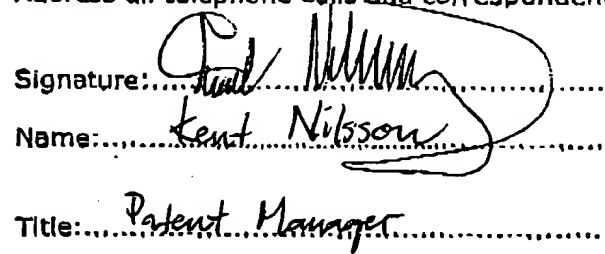 Address all telephone calls and correspondence
Signature:
Name: Kent Nilsson
Title: Patent Manager